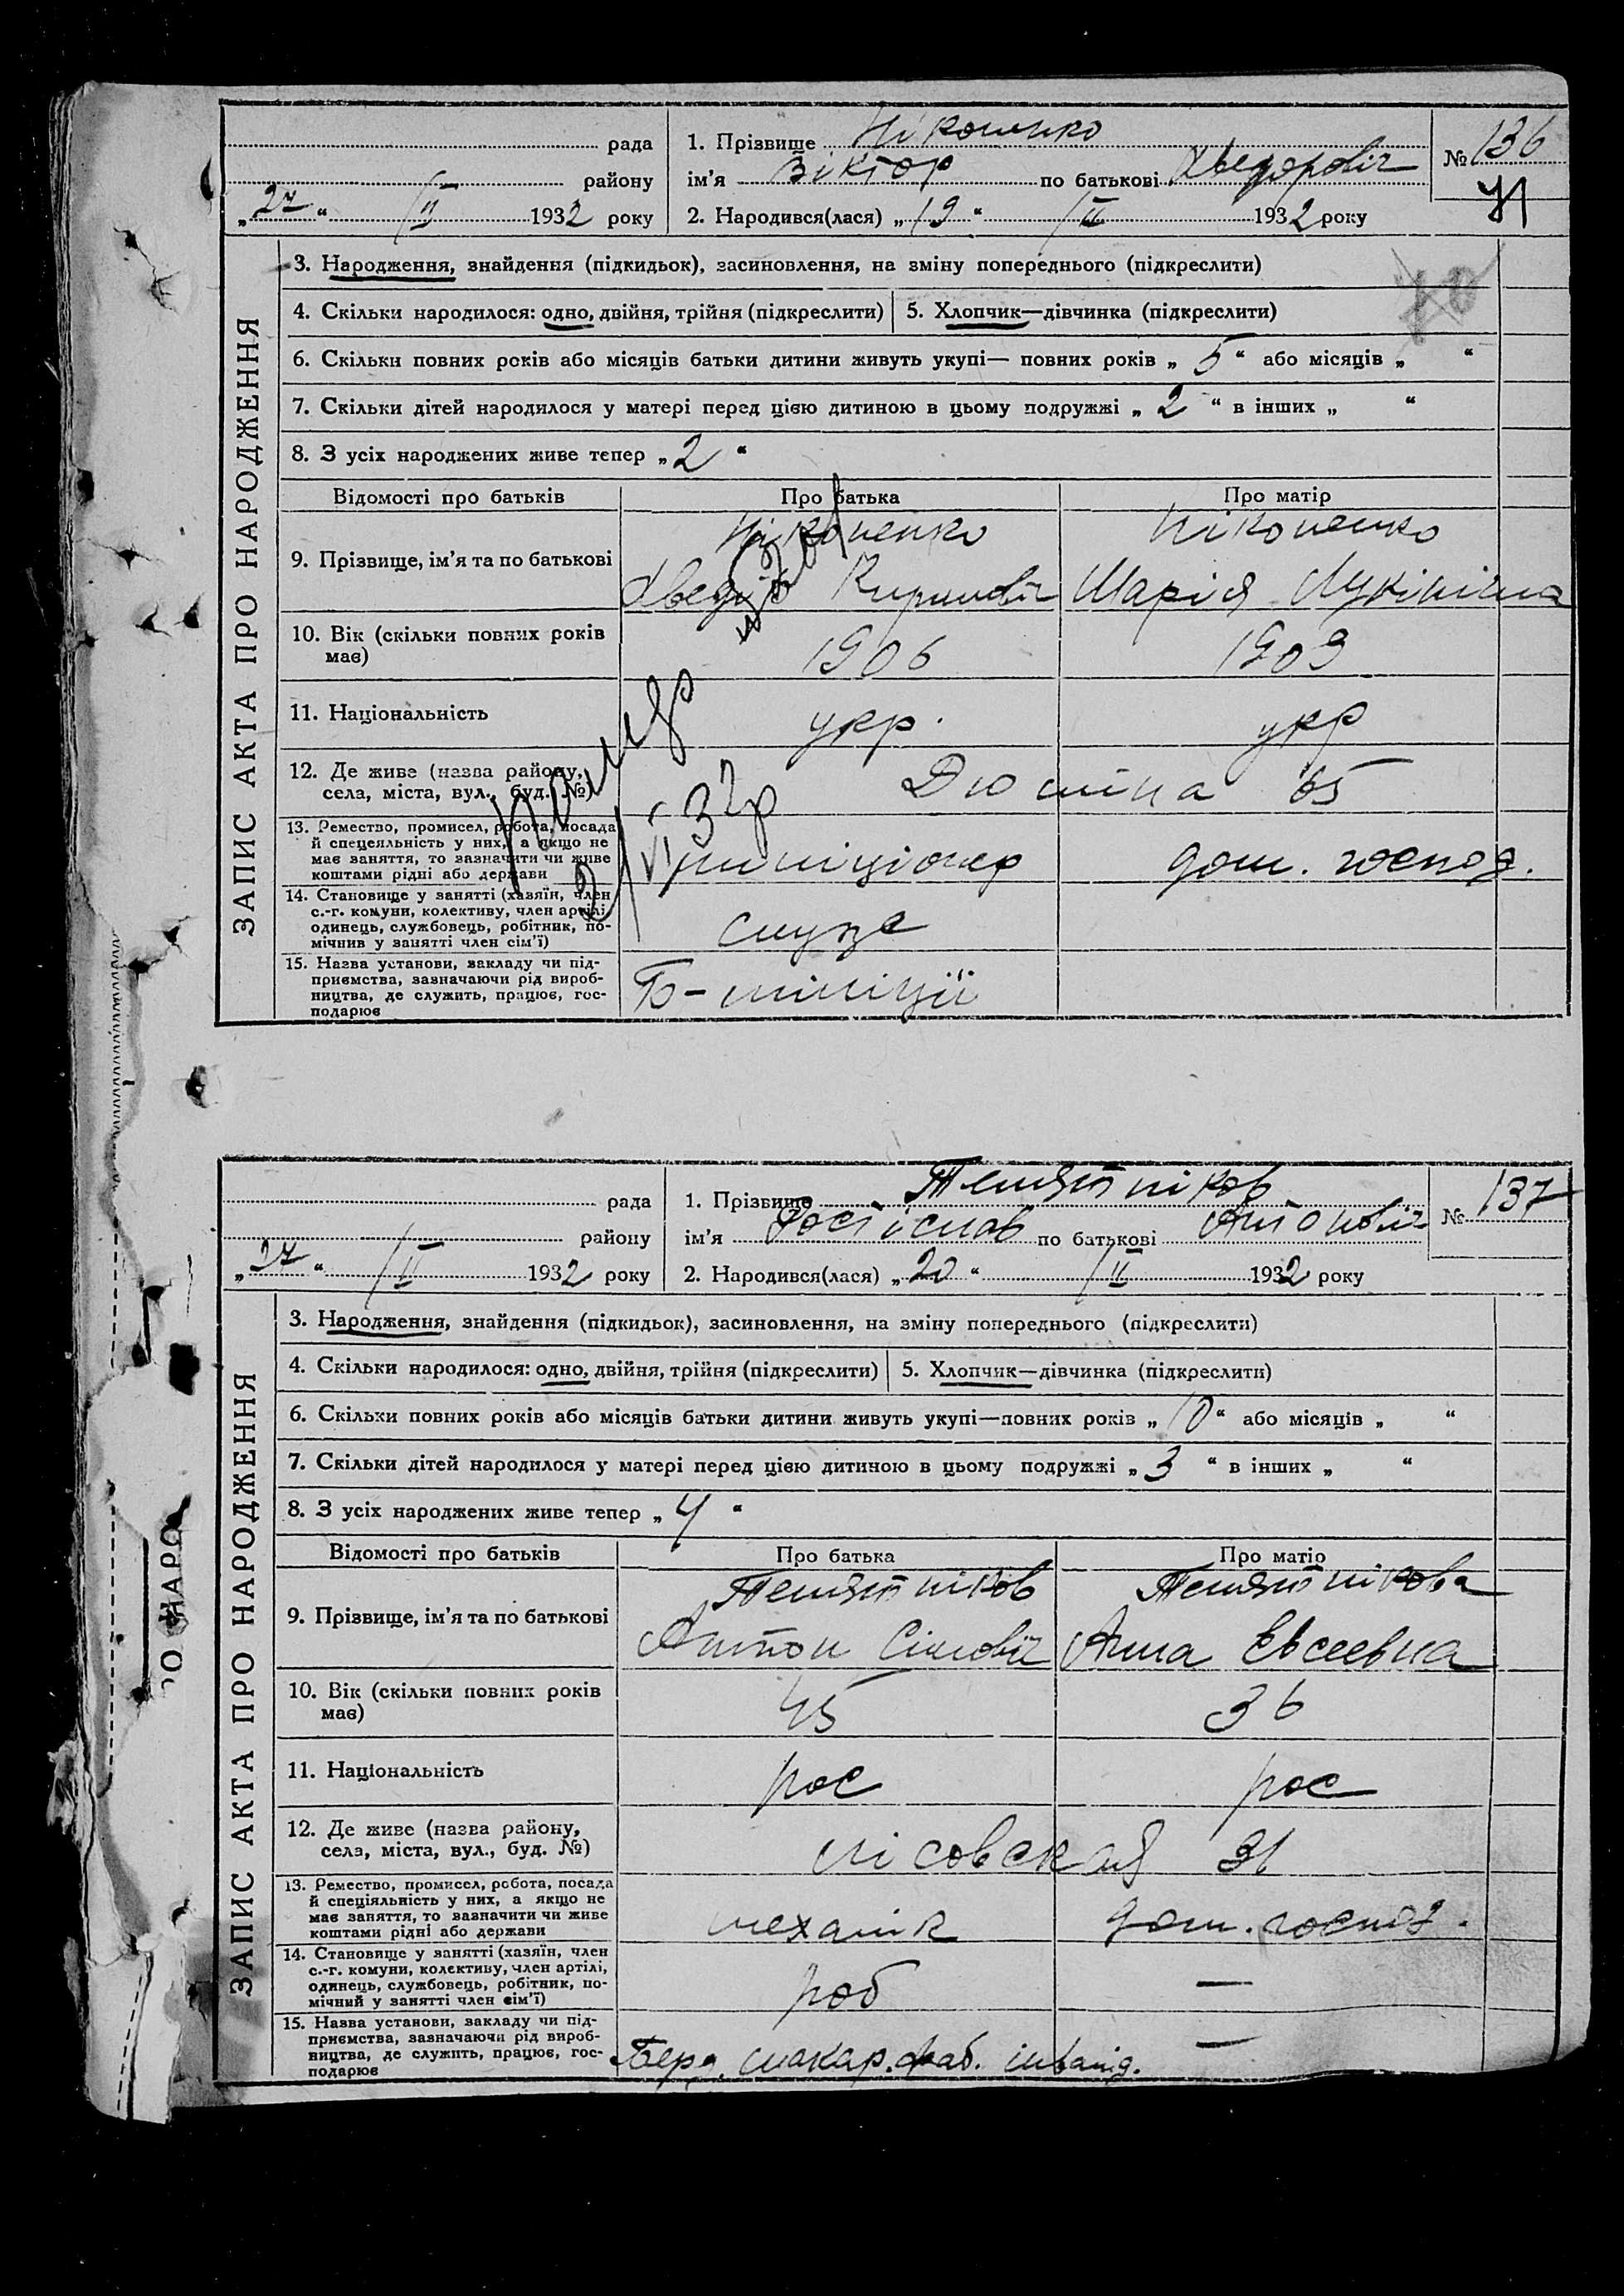 рада
району
„27“ /II 1932 року
1. Прізвище Ніконенко
ім’я Віктор по батькові Хведоровіч
2. Народився(лася) „19“ /II 1932 року
№ 136
71
ЗАПИС АКТА ПРО НАРОДЖЕННЯ
3. Народження, знайдення (підкидьок), засиновлення, на зміну попереднього (підкреслити)
4. Скільки народилося: одно, двійня, трійня (підкреслити) 5. Хлопчик—дівчинка (підкреслити)
6. Скільки повних років або місяців батьки дитини живуть укупі— повних років „ 5 “ або місяців „ “
7. Скільки дітей народилося у матері перед цією дитиною в цьому подружжі „ 2 “ в інших „ “
8. З усіх народжених живе тепер „ 2 “
Відомості про батьків Про батька Про матір
9. Прізвище, ім’я та по батькові
Ніконенко
Хведір Кирилович
Ніконенко
Марія Лукінічна
10. Вік (скільки повних років
має)
1906 1909
11. Національність укр. укр
12. Де живе (назва району,
села, міста, вул., буд. №)
65
13. Ремество, промисел, робота, посада
й спецеяльність у них, а якщо не
має заняття, то зазначити чи живе
коштами рідні або держави
міліціонер дом. господ.
14. Становище у занятті (хазяїн, член
с.-г. комуни, колективу, член артілі,
одинець, службовець, робітник, по-
мічнив у занятті член сім’ї)
служе
15. Назва установи, закладу чи під-
приємства, зазначаючи рід вироб-
ництва, де служить, працює, гос-
подарює
Б-міліції
32р
рада
району
„27“ /II 1932 року
1. Прізвище Темятніков
ім’я Ростіслав по батькові Антоновіч
2. Народився(лася) „20“ /II 1932 року
№ 137
ЗАПИС АКТА ПРО НАРОДЖЕННЯ
3. Народження, знайдення (підкидьок), засиновлення, на зміну попереднього (підкреслити)
4. Скільки народилося: одно, двійня, трійня (підкреслити) 5. Хлопчик—дівчинка (підкреслити)
6. Скільки повних років або місяців батьки дитини живуть укупі—повних років „ 10 “ або місяців „ “
7. Скільки дітей народилося у матері перед цією дитиною в цьому подружжі „ 3 “ в інших „ “
8. З усіх народжених живе тепер „ 4 “
Відомості про батьків Про батька Про матір
9. Прізвище, ім’я та по батькові
Темятніков
Антон
Темятнікова
Анна Евсеевна
10. Вік (скільки повних років
має)
45 36
11. Національність рос рос
12. Де живе (назва району,
села, міста, вул., буд. №)
лісовская 31
13. Ремество, промисел, робота, посада
й спеціяльність у них, а якщо не
має заняття, то зазначити чи живе
коштами рідні або держави
механік дом. господ.
14. Становище у занятті (хазяїн, член
с.-г. комуни, колективу, член артілі,
одинець, службовець, робітник, по-
мічний у занятті член сім’ї)
роб —
15. Назва установи, закладу чи під-
приємства, зазначаючи рід вироб-
ництва, де служить, працює, гос-
подарює
Берд. макар. фаб. інвалід. —
РО НАРО